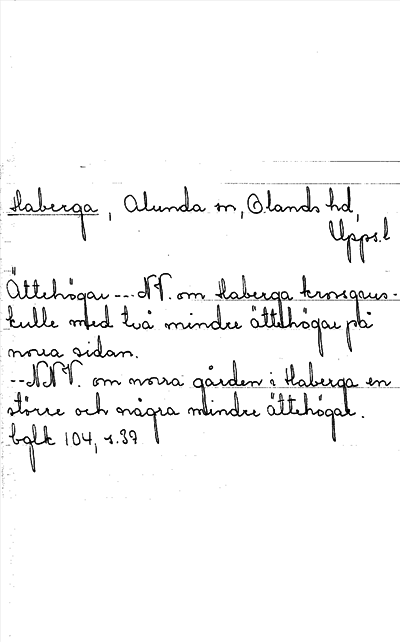 Haberga, Alunda sn, Olands hd,
Upps. l
Ättehögar --- NV. om Haberga krossgrus-
kulle med två mindre ättehögar på
norra sidan.
-- NNV. om norra gården i Haberga en
större och några mindre ättehögar.
bglk 104, s. 39